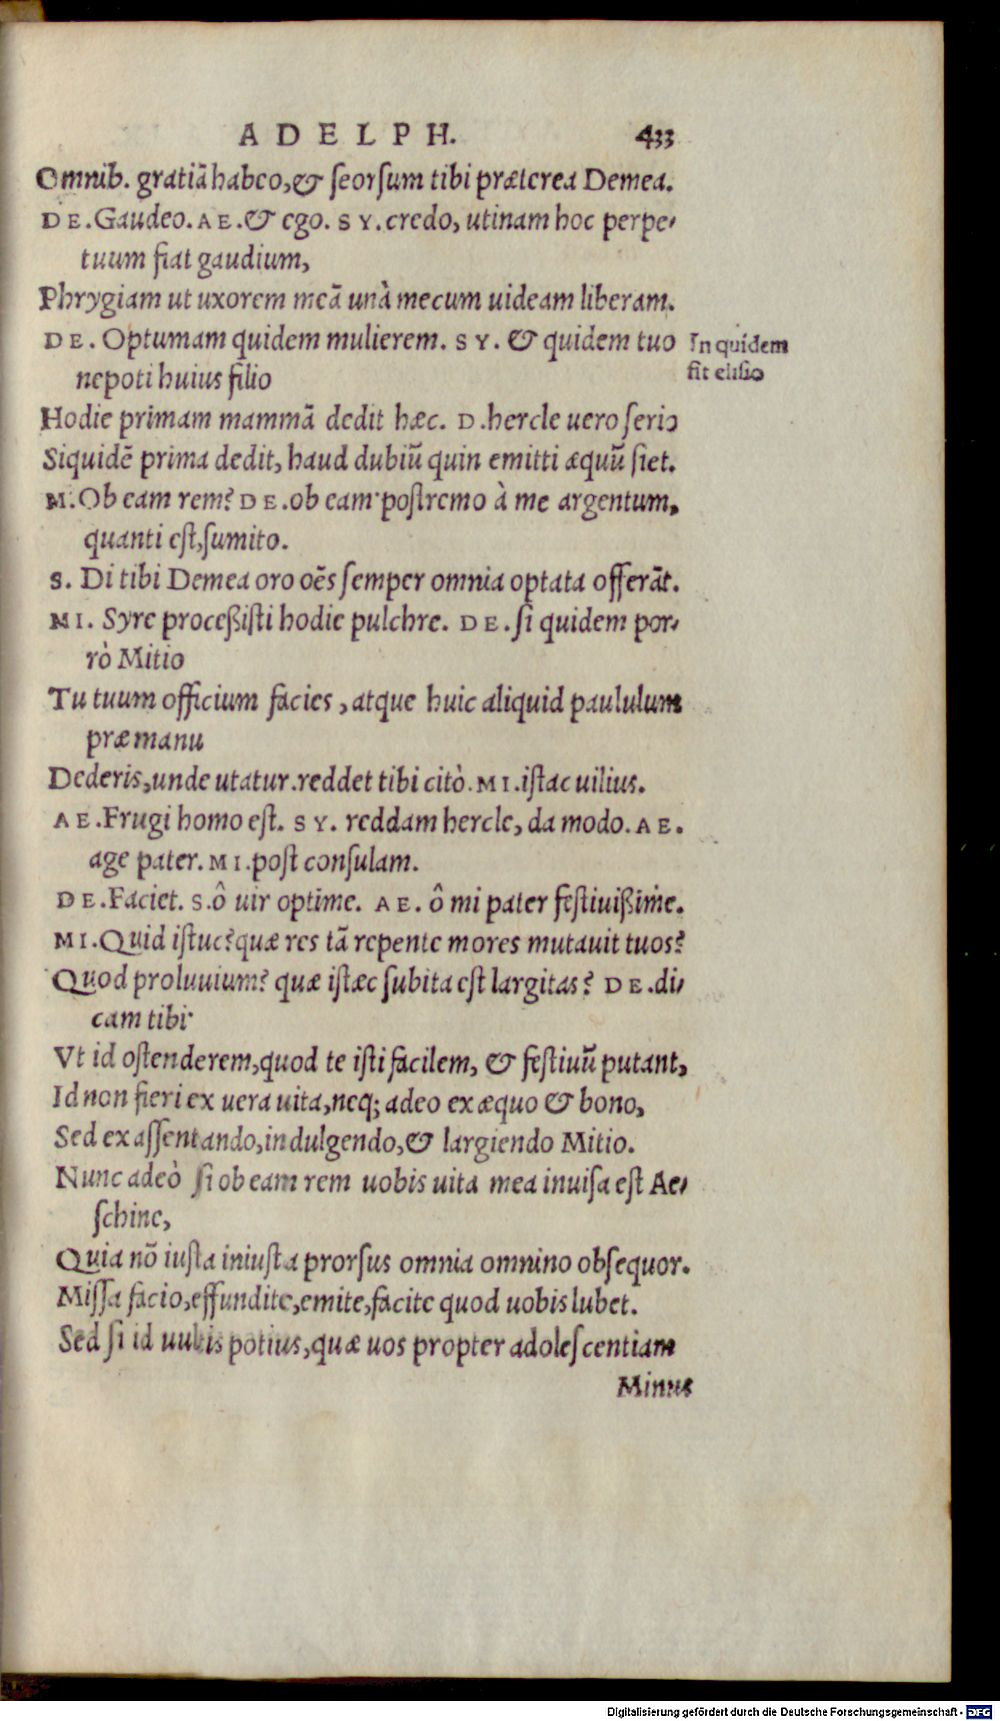 ADELPH. 433
Omnib. gratiā habeo, & seorsum tibi præterea Demea.
DE. Gaudeo. AE. & ego. SY. credo, utinam hoc perpe-
tuum fiat gaudium,
Phrygiam ut uxorem meā unà mecum uideam liberam.
DE. Optumam quidem mulierem. SY. & quidem tuo
In quidem
fit elisio
nepoti huius filio
Hodie primam mammā dedit hæc. D. hercle uero serio
Siquidē prima dedit, haud dubiū quin emitti æquū siet.
M. Ob eam rem? DE. ob eam. postremo à me argentum,
quanti est, sumito.
S. Di tibi Demea oro oēs semper omnia optata offerāt.
MI. Syre processisti hodie pulchre. DE. si quidem por-
rò Mitio
Tu tuum officium facies, atque huic aliquid paululum
præ manu
Dederis, unde utatur. reddet tibi citò. MI. istac uilius.
AE. Frugi homo est. SY. reddam hercle, da modo. AE.
age pater. MI. post consulam.
DE. Faciet. S. ô uir optime. AE. ô mi pater festiuissime.
MI. Quid istuc? quæ res tā repente mores mutauit tuos?
Quod proluuium? quæ istæc subita est largitas? DE. di-
cam tibi
Vt id ostenderem, quod te isti facilem, & festiuū putant,
Id non fieri ex uera uita, neq; adeo ex æquo & bono,
Sed ex assentando, indulgendo, & largiendo Mitio.
Nunc adeò si ob eam rem uobis uita mea inuisa est Ae-
schine,
Quia nō iusta iniusta prorsus omnia omnino obsequor.
Missa facio, effundite, emite, facite quod uobis lubet.
Sed si id uultis potius, quæ uos propter adolescentiam
Minus
Digitalisierung gefördert durch die Deutsche Forschungsgemeinschaft - DFG